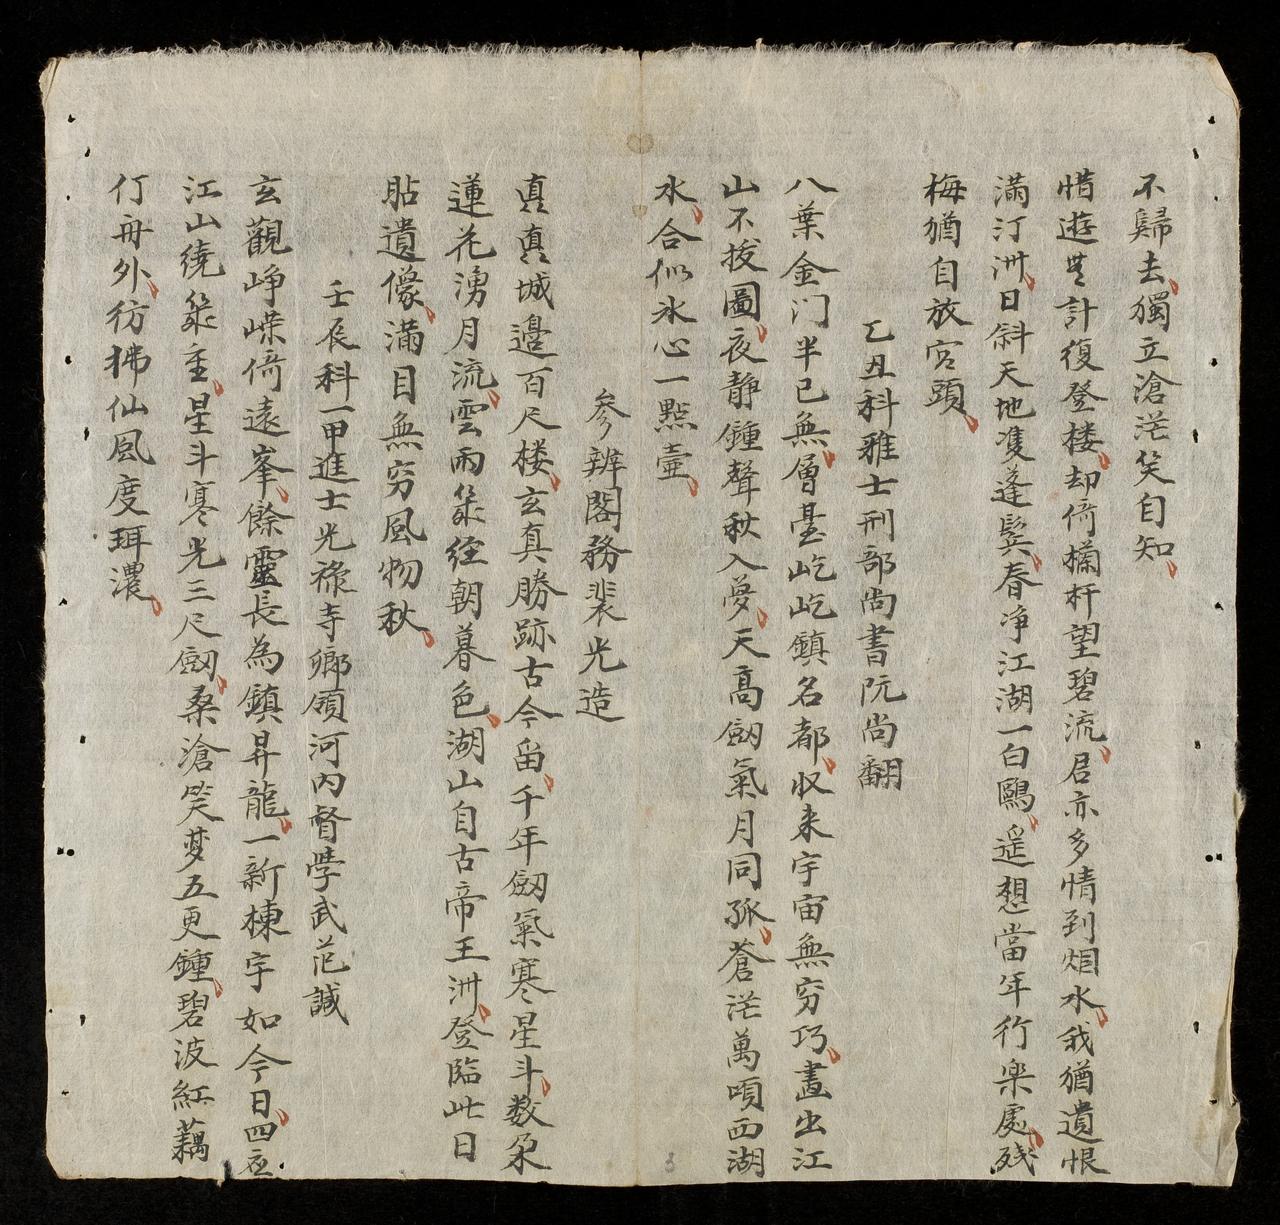 不歸去獨立滄茫笑自知
惜遊無計復登楼却倚欄杆望碧流君亦多情到烟水我猶遺恨
滿汀洲日斜天地隻蓬鬂春净江湖一白鷗遥想當年行楽處殘
梅猶自放宮頭
乙丑科雅士刑部尚書阮尚翻
八葉金门半已無層臺屹屹鎮名都収来宇宙無穷巧畫出江
山不拔圖夜静鍾聲秋入夢天高劔氣月同孤蒼茫萬頃西湖
水合似氷心一點壷
参辨閣務裴光造
真真城邉百尺楼玄真勝跡古今畄千年劔氣寒星斗数朶
蓮花湧月流雲雨幾經朝暮色湖山自古帝王洲登臨此日
貼遺像滿目無穷風物秋
壬辰科一甲進士光禄寺鄉領河内督學武范諴
玄觀崢嶸倚遠峯餘靈長為鎮昇龍一新棟宇如今日四
江山繞幾重星斗寒光三尺劔桑滄笑夢五更鍾碧波紅藕
仃舟外彷彿仙風度珥濃